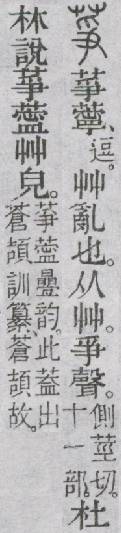 ⿱艹爭薴、逗。艸亂也。从艸。爭聲。側莖切。十一部。杜
林說⿱艹爭薴艸皃。⿱艹爭薴曡韵。此葢出蒼頡訓纂、蒼頡故。